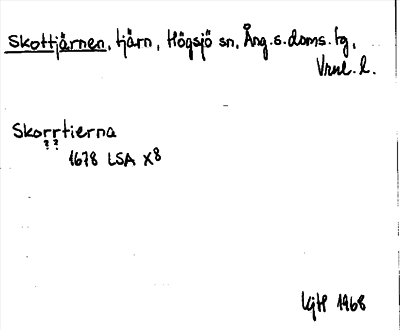 Skottjärnen, tjärn, Högsjö sn, Ång.s.doms.tg,
Vrnl. l.
Skorrtierna
? ?
1678 LSA X8
LgH 1968